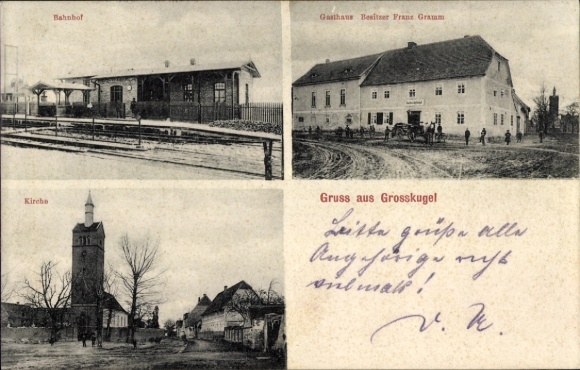 Bahnhof
Gasthaus Besitzer Franz Gramm
Kirche
Gruss aus Grosskugel
Bitte grüße alle
Angehörige recht
vielmals!